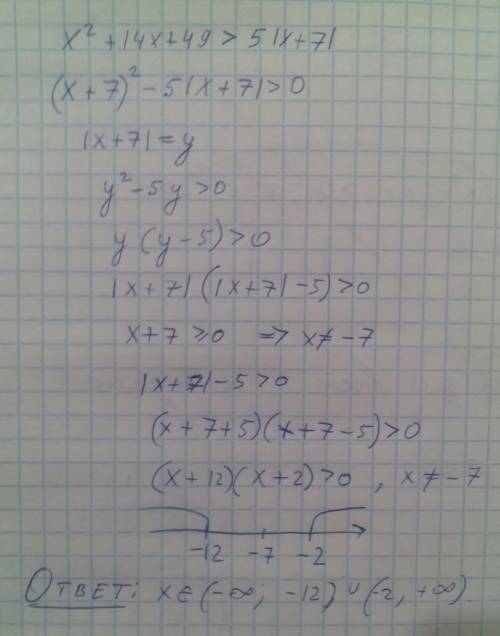 x² + 14x + 49 > 5|x+7|
(x+7)² - 5|x+7| > 0
|x+7| = y
y² - 5y > 0
y(y-5) > 0
|x+7|(|x+7|-5) > 0
x+7 ≥ 0 => x ≠ -7
|x+7| - 5 > 0
(x+7+5)(x+7-5) > 0
(x+12)(x+2) > 0, x ≠ -7
-12 -7 -2
Ответ: x ∈ (-∞; -12) ∪ (-2, +∞)